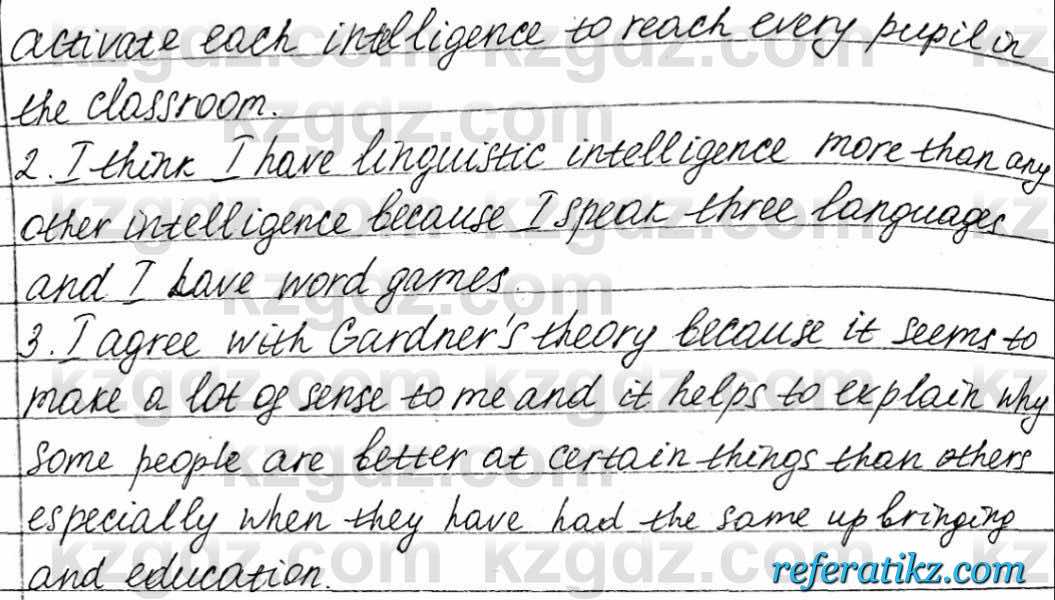 activate each intelligence to reach every pupil in
the classroom.
2. I think I have linguistic intelligence more than any
other intelligence because I speak three languages
and I have word games.
3. I agree with Gardner's theory because it seems to
make a lot of sense to me and it helps to explain why
some people are better at certain things than others
especially when they have had the same upbringing
and education.
kzgdz.com
referatikz.com